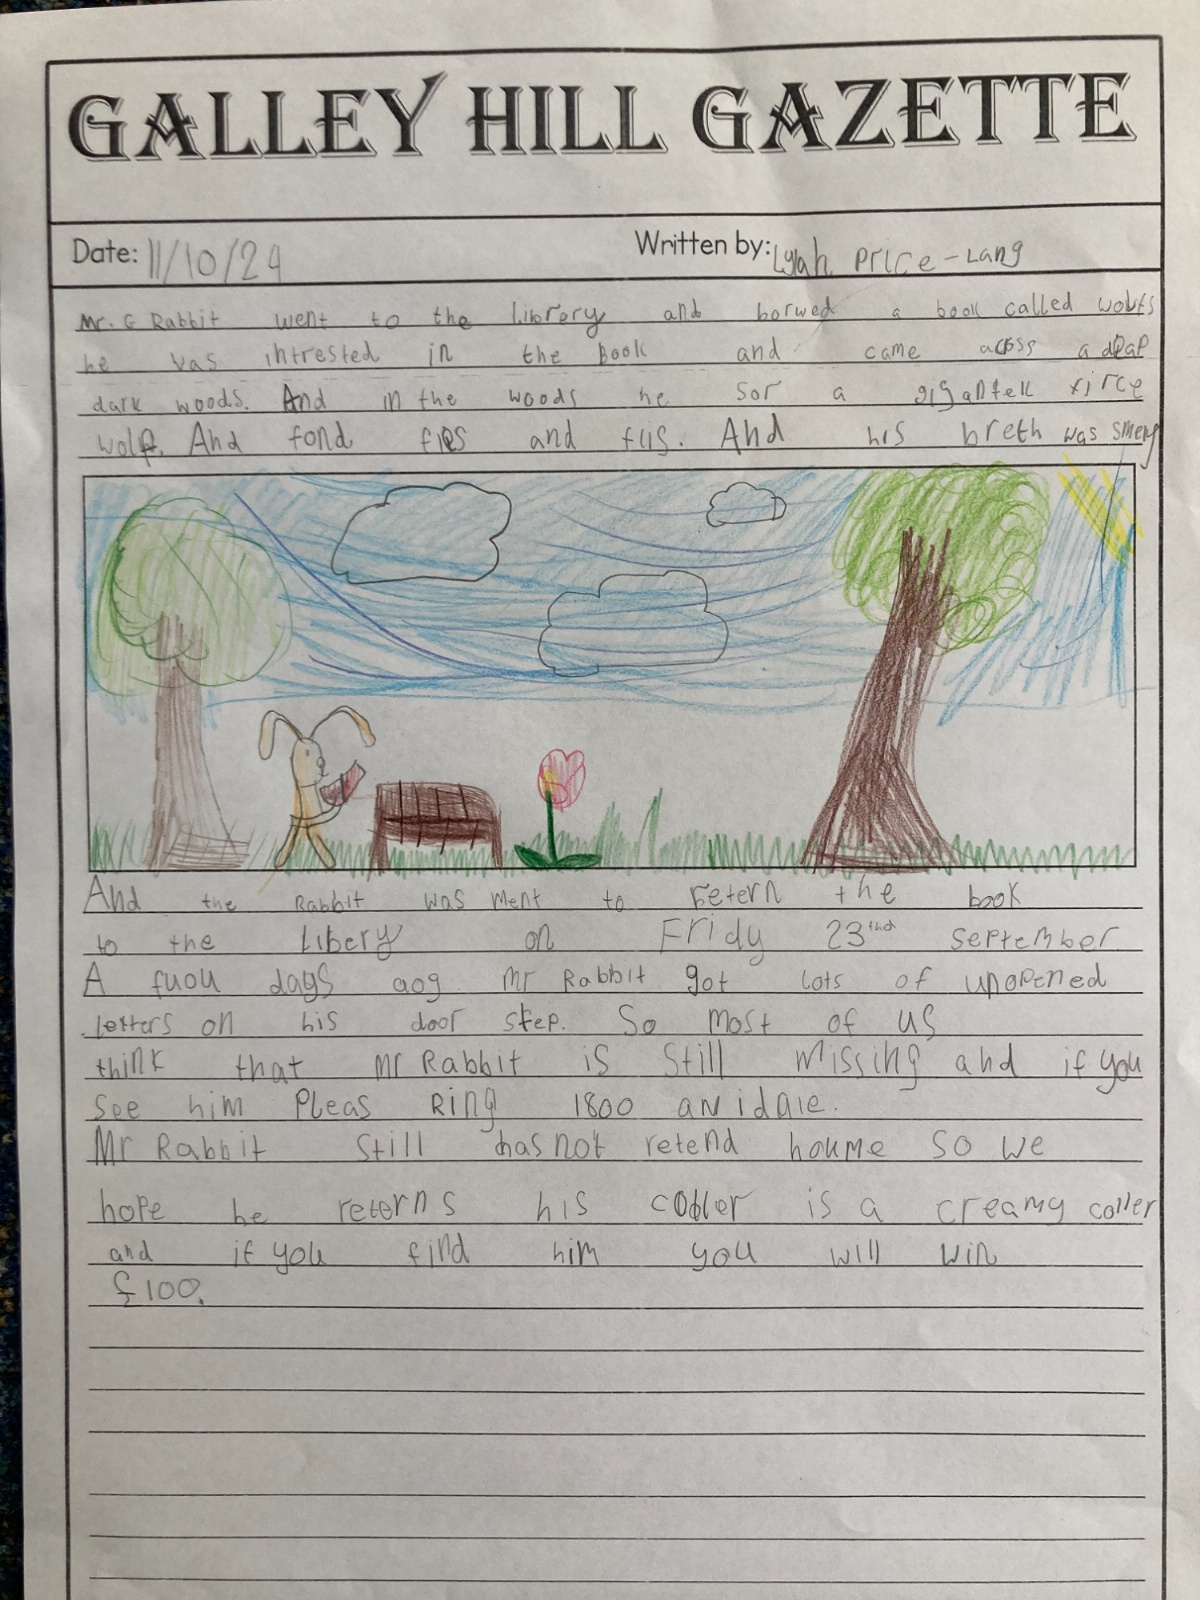 GALLEY HILL GAZETTE
Date: 11/10/24 Written by: Lylah Price-Lang
Mr. G Rabbit went to the librery and borwed a book called wolves
he was intrested in the Book and came across a deap
dark woods. And in the woods he sor a gigantek firce
wolf. And fond flies and flis. And his breth was smely
And the Rabbit was ment to retern the book
to the Libery on Fridy 23thd September
A fuou days aog Mr Rabbit got lots of unopened
letters on his door step. So most of us
think that Mr Rabbit is Still Missing and if you
See him Pleas Ring 1800
Mr Rabbit Still has not retend houme so we
hope he reterns his is a creamy coller
and if you find him you will win
£100.